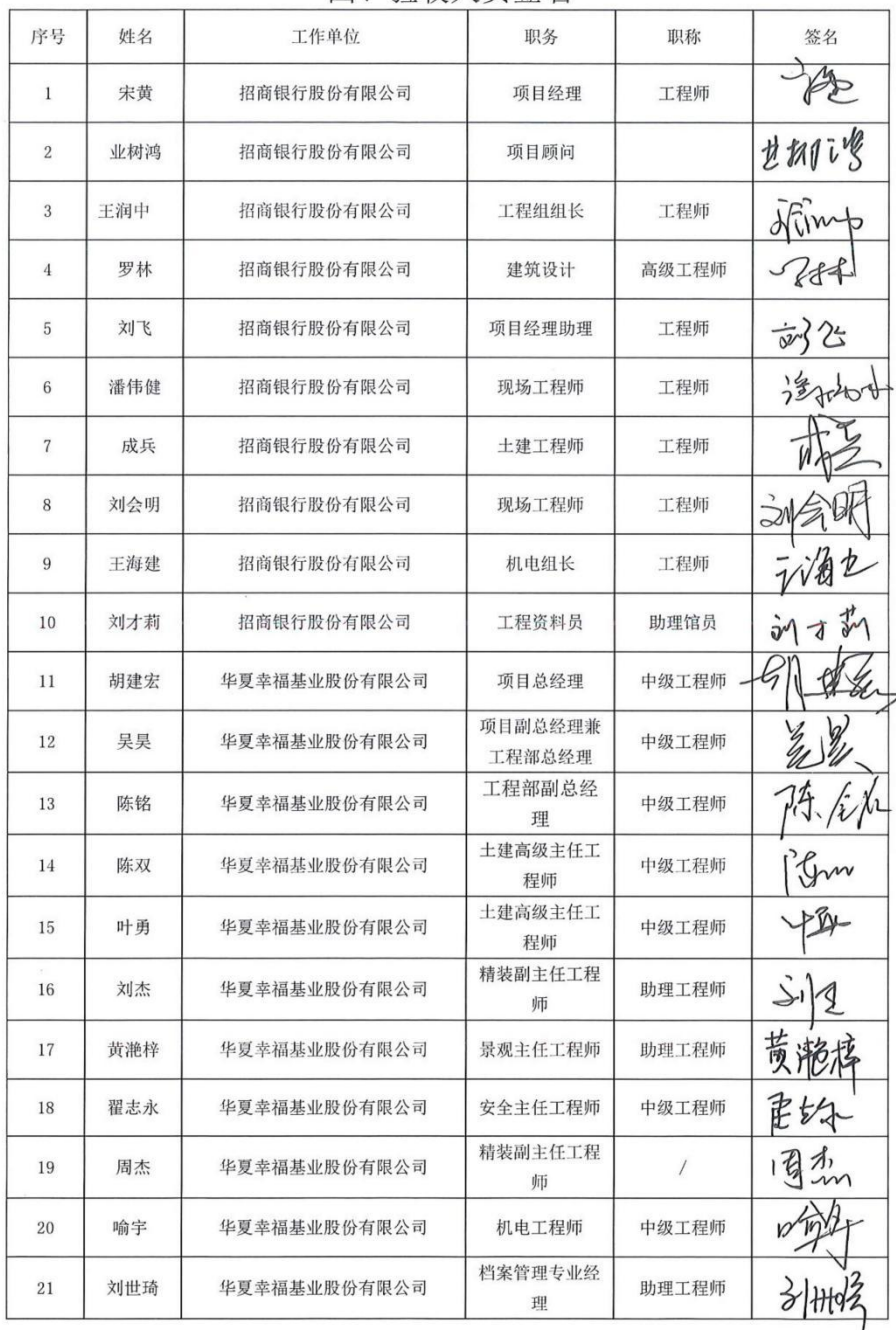 四、验收人员签名
序号 姓名 工作单位 职务 职称 签名
1 宋黄 招商银行股份有限公司 项目经理 工程师
2 业树鸿 招商银行股份有限公司 项目顾问 业树鸿
3 王润中 招商银行股份有限公司 工程组组长 工程师
4 罗林 招商银行股份有限公司 建筑设计 高级工程师 罗林
5 刘飞 招商银行股份有限公司 项目经理助理 工程师 刘飞
6 潘伟健 招商银行股份有限公司 现场工程师 工程师
7 成兵 招商银行股份有限公司 土建工程师 工程师 成兵
8 刘会明 招商银行股份有限公司 现场工程师 工程师 刘会明
9 王海建 招商银行股份有限公司 机电组长 工程师
10 刘才莉 招商银行股份有限公司 工程资料员 助理馆员 刘才莉
11 胡建宏 华夏幸福基业股份有限公司 项目总经理 中级工程师 胡建宏
12 吴昊 华夏幸福基业股份有限公司 项目副总经理兼
工程部总经理 中级工程师 吴昊
13 陈铭 华夏幸福基业股份有限公司 工程部副总经
理 中级工程师 陈铭
14 陈双 华夏幸福基业股份有限公司 土建高级主任工
程师 中级工程师 陈双
15 叶勇 华夏幸福基业股份有限公司 土建高级主任工
程师 中级工程师 叶勇
16 刘杰 华夏幸福基业股份有限公司 精装副主任工程
师 助理工程师 刘杰
17 黄滟梓 华夏幸福基业股份有限公司 景观主任工程师 助理工程师 黄滟梓
18 翟志永 华夏幸福基业股份有限公司 安全主任工程师 中级工程师
19 周杰 华夏幸福基业股份有限公司 精装副主任工程
师 / 周杰
20 喻宇 华夏幸福基业股份有限公司 机电工程师 中级工程师 喻宇
21 刘世琦 华夏幸福基业股份有限公司 档案管理专业经
理 助理工程师 刘世琦